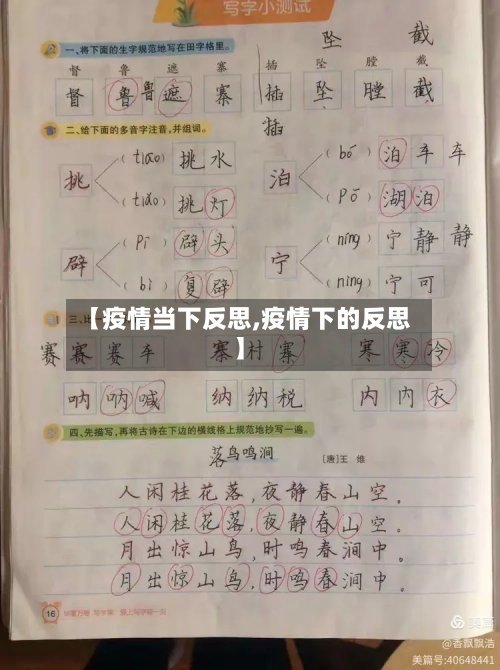 写字小测试
一、将下面的生字规范地写在田字格里。
坠 截
督 鲁 遮 寨 插 坠 膛 截
督 鲁 鲁 遮 寨 插 坠 膛 截
插
二、给下面的多音字注音,并组词。
挑 (tiāo) 挑水 泊 (bó) 泊车 车
(tiǎo) 挑灯 (pō) 湖泊
辟 (pì) 辟头 宁 (níng) 宁静 静
(bì) 复辟 (nìng) 宁可
三、比
【疫情当下反思,疫情下的反思】
赛 赛 赛车 寨 村寨 寒 寒冷
呐 呐喊 纳 纳税 内 内衣
四、先描写,再将古诗在下边的横线格上规范地抄写一遍。
落鸟鸣涧 [唐]王 维
人闲桂花落,夜静春山空。
人闲桂花落,夜静春山空。
月出惊山鸟,时鸣春涧中。
月出惊山鸟,时鸣春涧中。
16
美篇
@香飘飘浩
美篇号:40648441